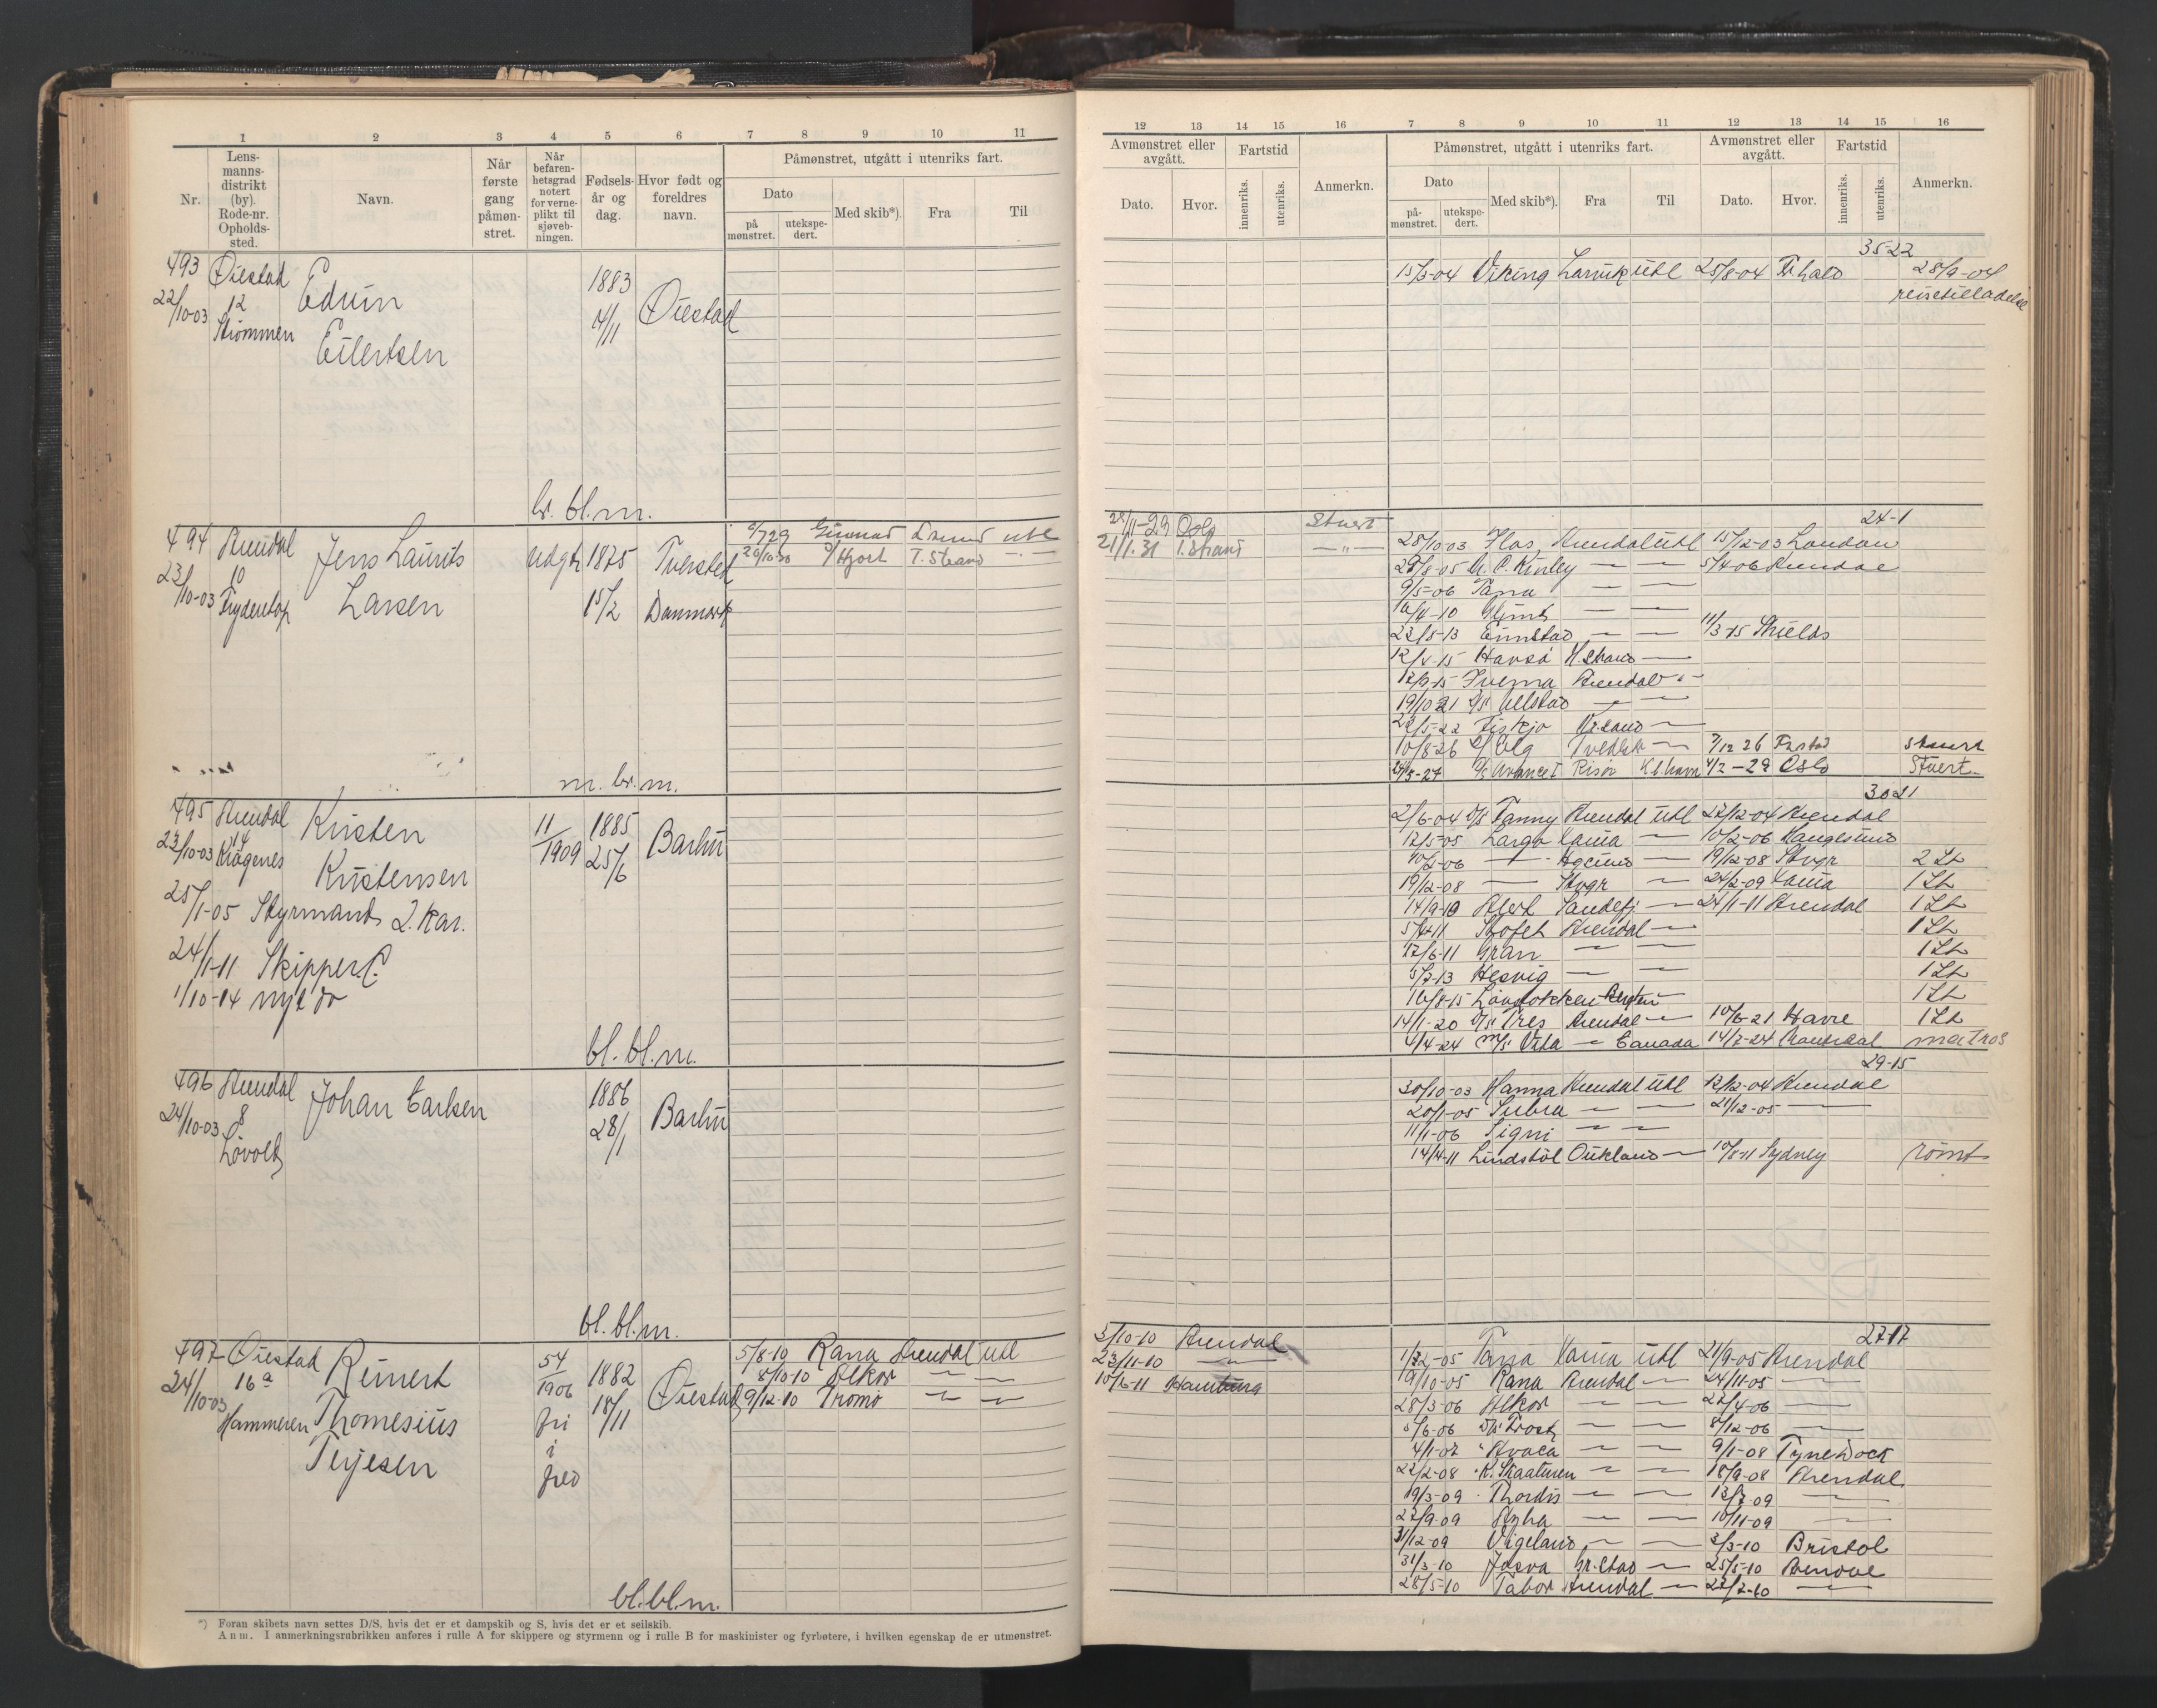 1 2 3 4 5 6 7 8 9 10 11
Nr.
Lens-
manns-
distrikt
(by).
Rode-nr.
Opholds-
sted.
Navn.
Når
første
gang
påmøn-
stret.
Når
befaren-
hetsgrad
notert
for verne-
plikt til
sjøveb-
ningen.
Fødsels-
år og
dag.
Hvor født og
foreldres
navn.
Påmønstret, utgått i utenriks fart.
Dato
på
mønstret.
utekspe-
dert.
Med skib*).
Fra
Til
493 Øiestad Edvin 1883 Øiestad
22/10-03 12 Eilertsen 14/11
Strømmen
br. bl. m.
494 Arendal Jens Laurits Udg. 1875 Tversted
23/10-03 10 Larsen 15/2 Danmark
Gunnar utl
20/10-30 Hjort T. Strand
m. br. m.
495 Arendal Kristen 11/1909 1885 Barbu
23/10-03 14 Kristensen 25/6
25/1-05 Styrmands 2. kar.
24/1-11 Skipper C.
1/10-14 nyt do
bl. bl. m.
496 Arendal Johan Carlsen 1886 Barbu
24/10-03 8 28/1
Løvolt
bl. bl. m.
497 Øiestad Reinert 54/1906 1882 Øiestad
24/10-03 16a Thomesius fri i fred 18/11
Hammeren Terjesen
5/8-10 Rana Arendal utl
8/10-10 Alkor — —
9/12-10 Tromø — —
bl. bl. m.
*) Foran skibets navn settes D/S, hvis det er et dampskib og S, hvis det er et seilskib.
Anm. I anmerkningsrubrikken anføres i rulle A for skippere og styrmenn og i rulle B for maskinister og fyrbøtere, i hvilken egenskap de er utmønstret.
12 13 14 15 16 7 8 9 10 11 12 13 14 15 16
Avmønstret eller
avgått.
Dato.
Hvor.
Fartstid
innenriks.
utenriks.
Anmerkn.
Påmønstret, utgått i utenriks fart.
Dato
på-
mønstret.
utekspe-
dert.
Med skib*).
Fra
Til
Avmønstret eller
avgått.
Dato.
Hvor.
Fartstid
innenriks.
utenriks.
Anmerkn.
35-22
15/3-04 Viking Larvik utl 25/8-04 Fr.hald 28/9-04
reisetilladelse
24-1
/11-29 Oslo Stuert
21/1.31 T. Strand —"—
28/10-03 Arendal utl 15/12-03 London
29/8-05 Mc. Kinley — — 5/4-06 Arendal
9/5-06 Tana — —
16/4-10 Glimt — —
23/8-13 — — 11/3-15 Shields
12/4-15
12/9-15 Arendal
19/10 21 D/S — —
22/5-22
10/8-26 — 7/12 26 Stuert
24/5-27 Risør 4/2-29 Oslo Stuert.
30 21
2/6-04 D/S Fanny Arendal utl 22/12-04 Arendal
12/5-05 Largo — 10/2-06 Haugesund
10/2-06 — — 19/12-08 Stvgr 2 St
19/12-08 — Stvgr — 24/2-09 1 St
14/9-10 Sandefj. — 24/1-11 Arendal 1 St
5/4-11 Arendal — 1 St
17/6-11 Gran — — 1 St
5/7-13 Hesvig — — 1 St
16/8-15 Løvdokken Bergen — 1 St
14/1-20 D/S Tres Arendal — 10/6-21 Havre 1 St
4/4-24 M/S Vida — Canada 14/7-24 matros
29-15
30/10-03 Hanna Arendal utl 12/12-04 Arendal
20/1-05 — — 21/12-05 —
11/1-06 Signi — —
14/4-11 Lindstøl — 10/8-11 Sydney rømt
27-17
3/10-10 Arendal
23/11-10 —
10/6-11 Hamburg
Tana utl 21/9-05 Arendal
19/10-05 Rana Arendal — 24/11-05 —
28/3-06 Alkor — — 22/4-06 —
5/6-06 D/S Frost — — 8/12-06 —
4/1-07 — — 9/1-08 Tyne Dock
22/2-08 — — 18/9-08 Arendal
19/3-09 Thordis — — 12/7-09 —
22/9-09 — — 10/11-09 —
31/12-09 Vigeland — — 3/3-10 Bristol
31/3-10 Gr.stad — 25/5-10 Arendal
28/5-10 Tabor Arendal — 22/7-10 —